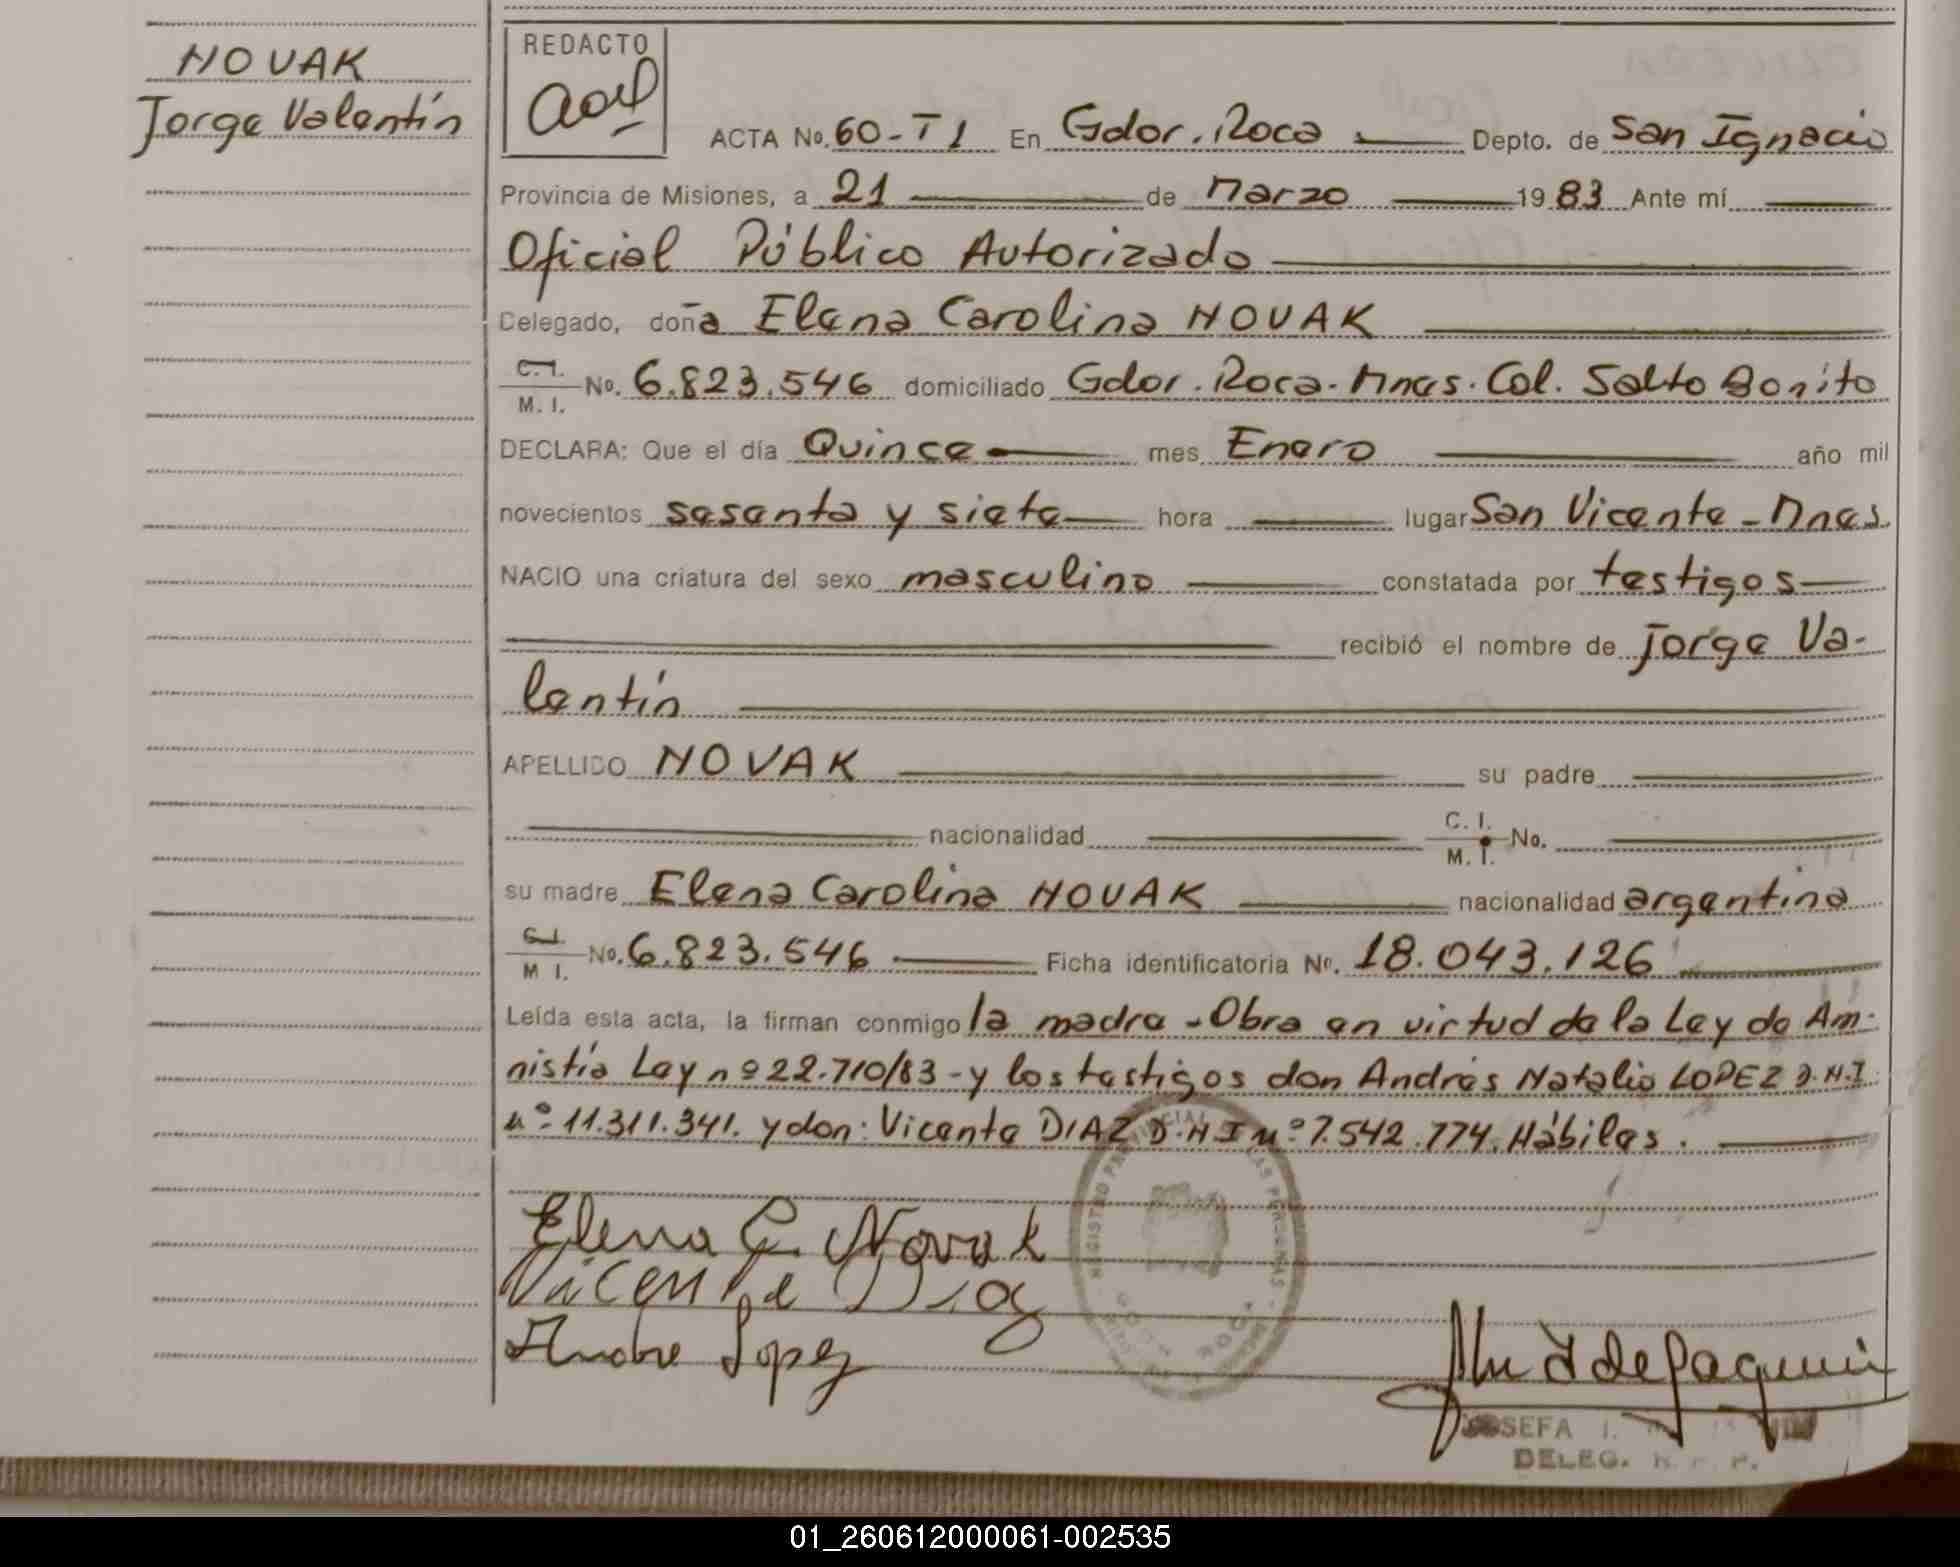 NOVAK
Jorge Valentín
REDACTO
ACTA No. 60-T1 En Gdor. Roca Depto. de San Ignacio
Provincia de Misiones, a 21 de Marzo 1983 Ante mí
Oficial Público Autorizado
Delegado, doña Elena Carolina NOVAK
C.I.
M. I. No. 6.823.546 domiciliado Gdor. Roca. Mnes. Col. Salto Bonito
DECLARA: Que el día Quince mes Enero año mil
novecientos sesenta y siete hora lugar San Vicente - Mnes.
NACIO una criatura del sexo masculino constatada por testigos
recibió el nombre de Jorge Va-
lentín
APELLIDO NOVAK su padre
nacionalidad C. I.
M. I. No.
su madre Elena Carolina NOVAK nacionalidad argentina
C.I.
M I. No. 6.823.546 Ficha identificatoria No. 18.043.126
Leída esta acta, la firman conmigo la madre - Obra en virtud de la Ley de Am-
nistía Ley nº 22.710/83 - y los testigos don Andrés Natalio LOPEZ D.N.I
nº 11.311.341. y don: Vicente DIAZ D.N.I nº 7.542.774. Hábiles.
Elena C. Novak
Vicente Diaz
Andre Lopez
JOSEFA I.
DELEG. R. P. P.
01_260612000061-002535